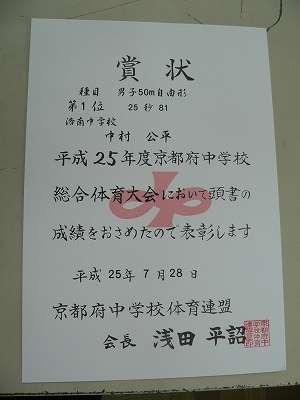 賞状
種目 男子50m自由形
第1位 25秒81
洛南中学校
中村 公平
平成25年度京都府中学校
総合体育大会において頭書の
成績をおさめたので表彰します
平成25年7月28日
京都府中学校体育連盟
会長 浅田 平詔